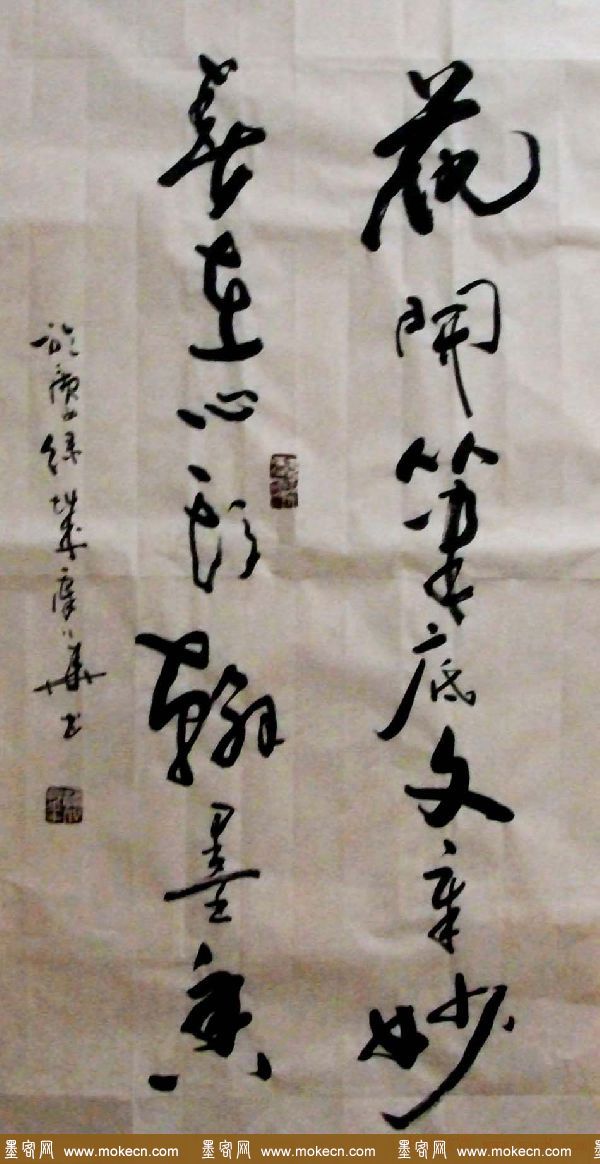 花開筆底文章妙
春在心頭翰墨香
於廣西绿城華书
墨客网 www.mokecn.com 墨客网 www.mokecn.com 墨客网 www.mokecn.com